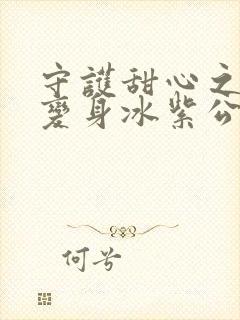 守護甜心之
變身冰紫公
何兮